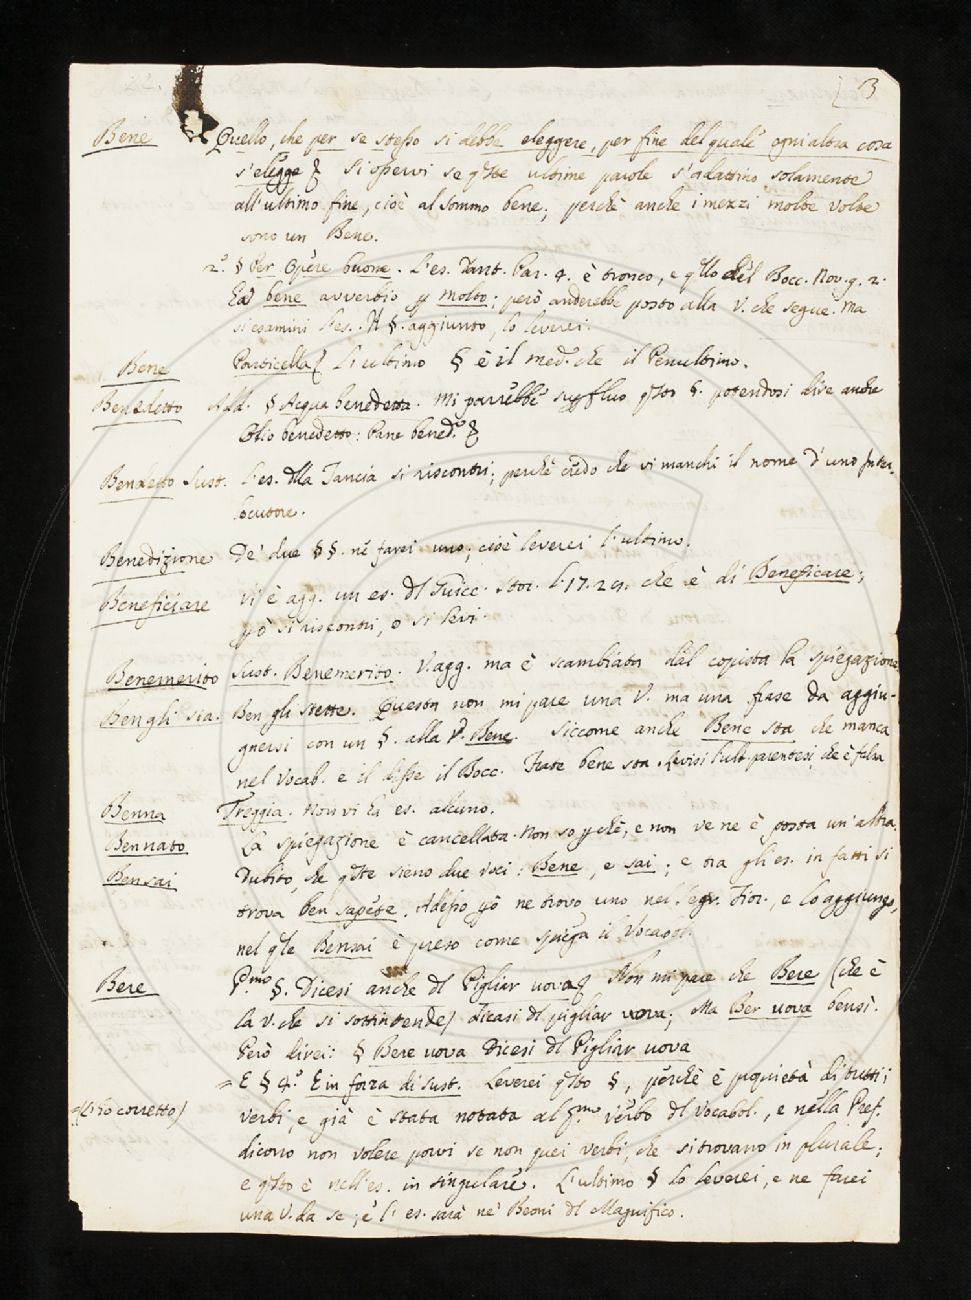 13
Bene Quello, che per se stesso si debbe eleggere, per fine del quale ogni altra cosa
s'elegge } Si osservi se q.ste ultime parole s'adattino solamente
all'ultimo fine, cioè al sommo bene; perchè anche i mezzi molte volte
sono un Bene.
2.° § Per Opere buone. L'es. Dant. Par. 4. è tronco, e q.llo del Bocc. Nov. g. 2.
Ed bene avverbio p molto; però anderebbe posto alla V. che segue. Ma
si esamini l'es. Il §. aggiunto, lo leverei.
Bene Particella{ Li ultimo § è il med.° che il Penultimo.
Benedetto Add. § Acqua benedetta. Mi parrebbe supfluo q.sto §. potendosi dire anche
Olio benedetto: Pane bened.° }
Benedetto Sust. L'es. dlla Tancia si riscontri; perchè credo che vi manchi il nome d'uno Inter-
locutore.
Benedizione De' due §§. nè farei uno; cioè leverei l'ultimo.
Beneficiare Vi è agg. un es. dl Guicc. Stor. l. 17. 29. che è di Beneficare;
pò si riscontri, o si levi.
Benemerito Sust. Benemerito. V. agg. ma è scambiata dal copista la spiegazione.
Ben gli sta. Ben gli stette. Questa non mi pare una V. ma una frase da aggiu-
gnersi con un §. alla V. Bene. Siccome anche Bene sta che manca
nel Vocab. e il disse il Bocc. Frate bene sta. Levisi l'ult. parentesi, che è falsa
Benna Treggia. Non vi ha es. alcuno.
Bennato La spiegazione è cancellata. Non so pchè, e non ve ne è posta un'altra.
Bensai Dubito, che q.ste sieno due voci: Bene, e sai; e ora gli es. in fatti si
trova ben sapete. Adesso pò ne trovo uno nel Fior., e lo aggiungo,
nel q.le Bensai è preso come spiega il Vocabol.
Bere P.mo §. Dicesi anche dl Pigliar uova} Non mi pare che Bere (che è
la V. che si sottintende) dicasi dl pigliar uova; Ma Ber uova bensì.
Però direi: § Bere uova Dicesi dl Pigliar uova
= E § 4.° E in forza di sust. Leverei q.sto §, perchè è proprietà di tutti i
=(l'ho corretto) verbi, e già è stata notata al p.mo verbo dl Vocabol., e nella Pref.
dicono non volere porvi se non quei verbi, che si trovano in plurale;
e q.sto è nell'es. in singulare. L'ultimo § lo leverei, e ne farei
una V. da se; e l'es. sarà ne' Beoni dl Magnifico.